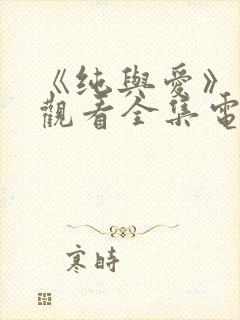 《纯與愛》
觀看全集電
寒時